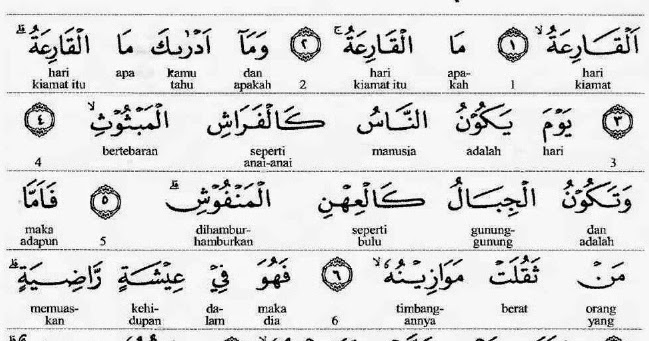 اَلْقَارِعَةُ ۙ ١ مَا الْقَارِعَةُ ۚ ٢ وَمَآ اَدْرٰىكَ مَا الْقَارِعَةُ ۗ
hari kiamat 1 apa-kah hari kiamat itu 2 dan apakah kamu tahu apa hari kiamat itu
٣ يَوْمَ يَكُوْنُ النَّاسُ كَالْفَرَاشِ الْمَبْثُوْثِ ۙ ٤
3 hari adalah manusia seperti anai-anai bertebaran 4
وَتَكُوْنُ الْجِبَالُ كَالْعِهْنِ الْمَنْفُوْشِ ۗ ٥ فَاَمَّا
dan adalah gunung-gunung seperti bulu dihambur-hamburkan 5 maka adapun
مَنْ ثَقُلَتْ مَوَازِيْنُهٗ ۙ ٦ فَهُوَ فِيْ عِيْشَةٍ رَّاضِيَةٍ ۗ
orang yang berat timbang-annya 6 maka dia da-lam kehi-dupan memuas-kan